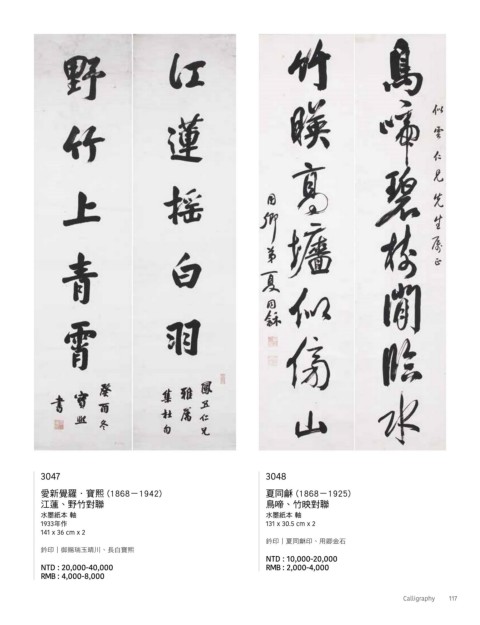 江蓮搖白羽
鳳五仁兄
雅屬
集杜句
野竹上青霄
癸酉冬
寶熙
書
似雲仁兄先生屬正
鳥啼碧樹閒臨水
竹暎高牆似傍山
用卿弟夏同龢
3047
愛新覺羅．寶熙（1868－1942）
江蓮、野竹對聯
水墨紙本 軸
1933年作
141 x 36 cm x 2
鈐印｜御賜瑞玉晴川、長白寶熙
NTD : 20,000-40,000
RMB : 4,000-8,000
3048
夏同龢（1868－1925）
鳥啼、竹映對聯
水墨紙本 軸
131 x 30.5 cm x 2
鈐印｜夏同龢印、用卿金石
NTD : 10,000-20,000
RMB : 2,000-4,000
Calligraphy 117